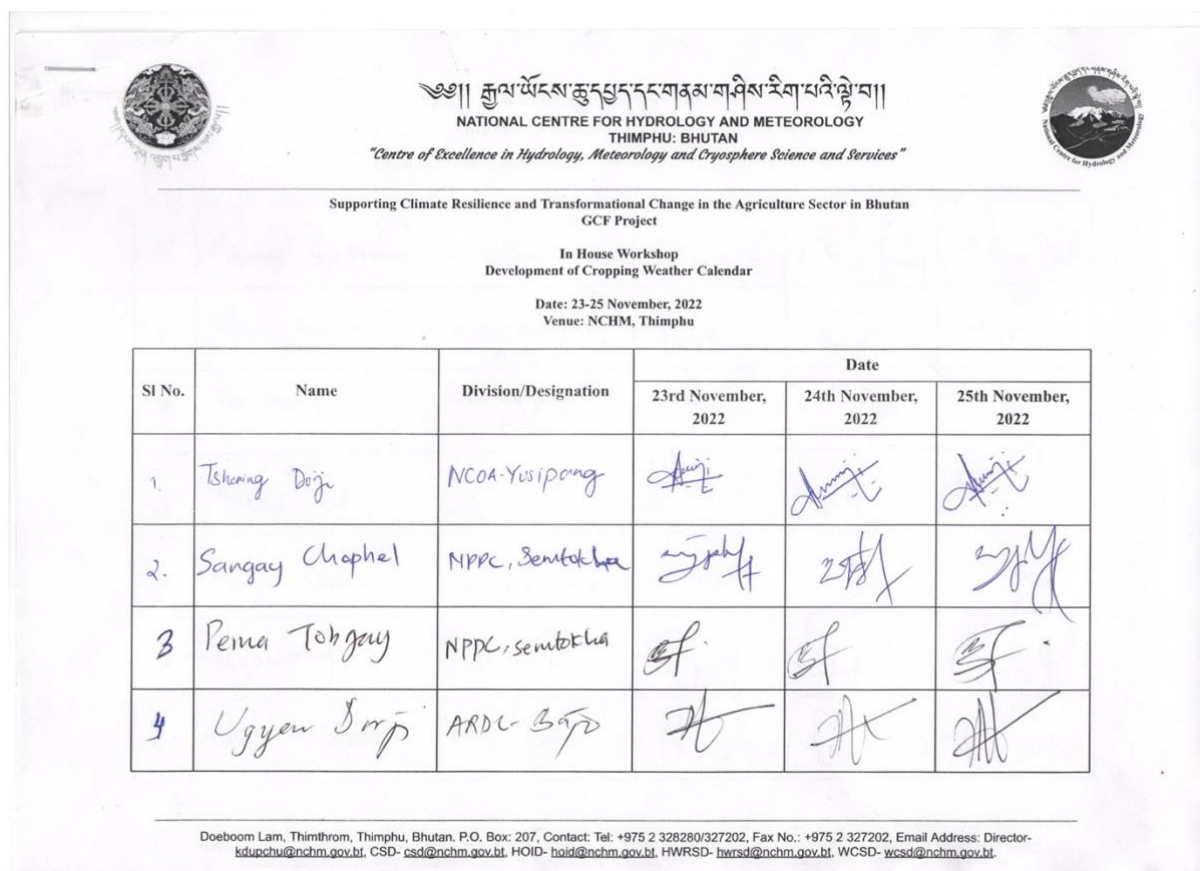 ༄༅།། རྒྱལ་ཡོངས་ཆུ་དཔྱད་དང་གནམ་གཤིས་རིག་པའི་ལྟེ་བ།།
NATIONAL CENTRE FOR HYDROLOGY AND METEOROLOGY
THIMPHU: BHUTAN
"Centre of Excellence in Hydrology, Meteorology and Cryosphere Science and Services"
National Centre for Hydrology and Meteorology
Supporting Climate Resilience and Transformational Change in the Agriculture Sector in Bhutan
GCF Project
In House Workshop
Development of Cropping Weather Calendar
Date: 23-25 November, 2022
Venue: NCHM, Thimphu
Sl No. Name Division/Designation Date
23rd November, 2022 24th November, 2022 25th November, 2022
1. Tshering Dorji NCOA-Yusipang
2. Sangay Chophel NPPC, Semtokha
3 Pema Tobgay NPPC, semtokha
4 Ugyen Dorji ARDC- Bajo
Doeboom Lam, Thimthrom, Thimphu, Bhutan. P.O. Box: 207, Contact: Tel: +975 2 328280/327202, Fax No.: +975 2 327202, Email Address: Director-
kdupchu@nchm.gov.bt, CSD- csd@nchm.gov.bt, HOID- hoid@nchm.gov.bt, HWRSD- hwrsd@nchm.gov.bt, WCSD- wcsd@nchm.gov.bt.